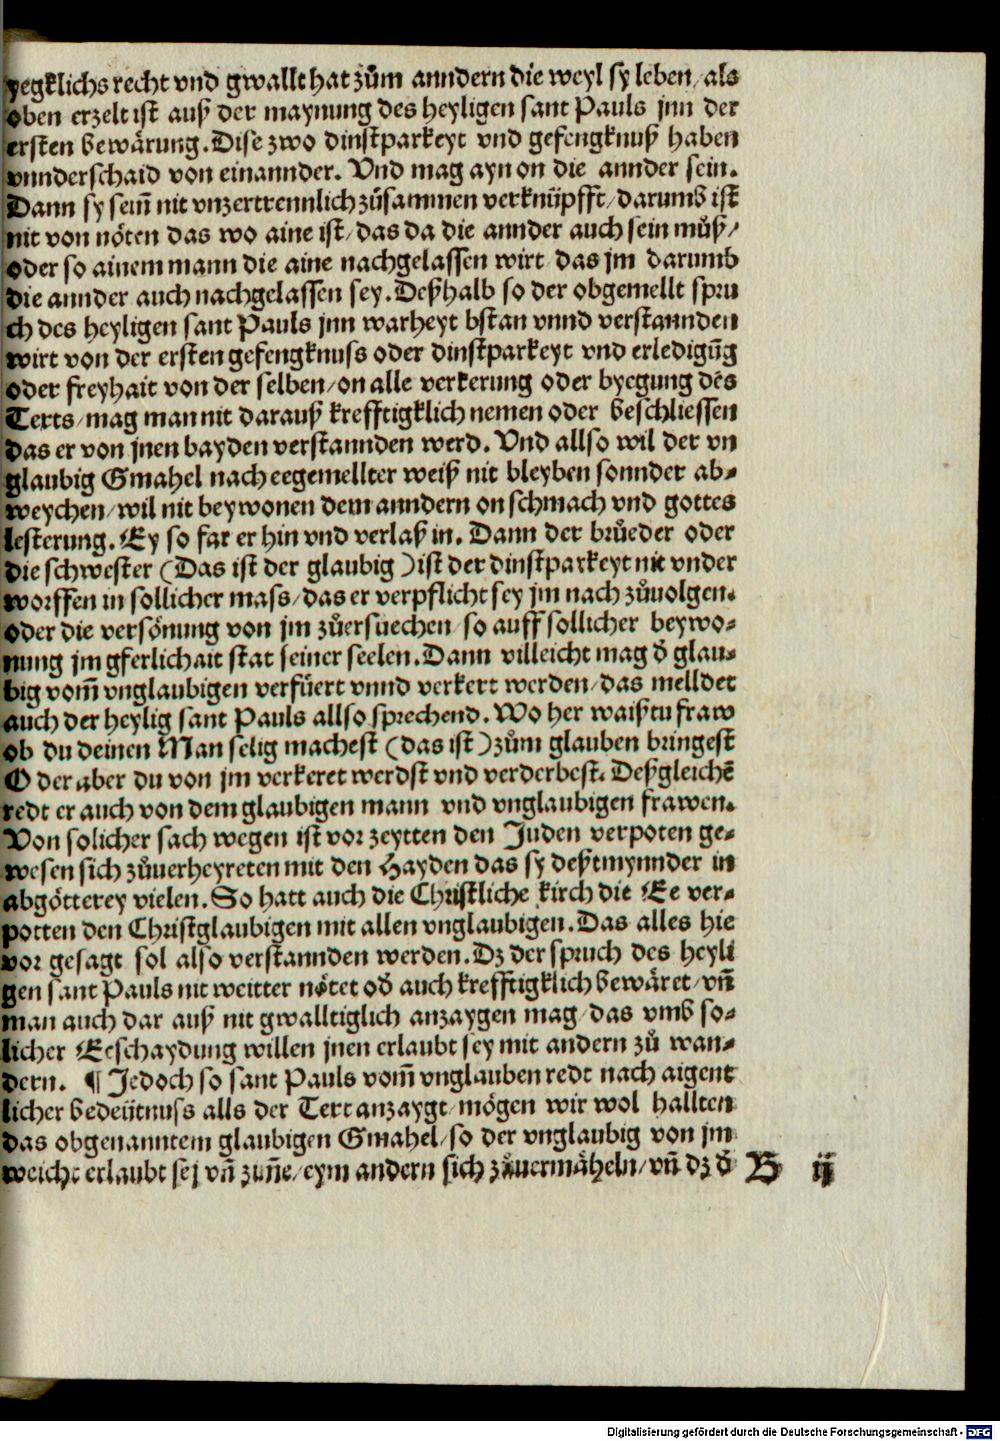 yegklichs recht vnd gwallt hat zům anndern die weyl sy leben/als
oben erzelt ist auß der maynung des heyligen sant Pauls jnn der
ersten bewärung. Dise zwo dinstparkeyt vnd gefengknuß haben
vnnderschaid von einannder. Vnd mag ayn on die annder sein.
Dann sy sein̄ nit vnzertrennlich zůsammen verknüpfft/darumb ist
nit von nöten das wo aine ist/das da die annder auch sein můß/
oder so ainem mann die aine nachgelassen wirt das jm darumb
die annder auch nachgelassen sey. Deßhalb so der obgemellt spru
ch des heyligen sant Pauls jnn warheyt bstan vnnd verstannden
wirt von der ersten gefengknuss oder dinstparkeyt vnd erledigūg
oder freyhait von der selben/on alle verkerung oder byegung dēs
Texts/mag man nit darauß krefftigklich nemen oder beschliessen
das er von jnen bayden verstannden werd. Vnd allso wil der vn
glaubig Gmahel nach eegemellter weiß nit bleyben sonnder ab-
weychen/wil nit beywonen dem anndern on schmach vnd gottes
lesterung. Ey so far er hin vnd verlaß in. Dann der brůeder oder
die schwester (Das ist der glaubig) ist der dinstparkeyt nit vnder
worffen in sollicher mass/das er verpflicht sey jm nach zůuolgen.
oder die versönung von jm zůersuechen/so auff sollicher beywo-
nung jm gferlichait stat seiner seelen. Dann villeicht mag d̄ glau-
big vom̄ vnglaubigen verfüert vnnd verkert werden/das melldet
auch der heylig sant Pauls allso sprechend. Wo her waißtu fraw
ob du deinen Man selig machest (das ist) zům glauben bringest
Oder aber du von jm verkeret werdst vnd verderbest. Deßgleichē
redt er auch von dem glaubigen mann vnd vnglaubigen frawen.
Von solicher sach wegen ist vor zeytten den Juden verpoten ge-
wesen sich zůuerheyreten mit den Hayden das sy deßtmynnder in
abgötterey vielen. So hatt auch die Christliche kirch die Ee ver-
potten den Christglaubigen mit allen vnglaubigen. Das alles hie
vor gesagt sol also verstannden werden. Dz der spruch des heyli
gen sant Pauls nit weitter nötet od̄ auch krefftigklich bewäret/vn̄
man auch dar auß nit gwalltiglich anzaygen mag/das vmb so-
licher Eeschaydung willen jnen erlaubt sey mit andern zů wan-
dern. ¶ Jedoch so sant Pauls vom̄ vnglauben redt nach aigent
licher bedeütnuss alls der Text anzaygt/mögen wir wol hallten
das obgenanntem glaubigen Gmahel/so der vnglaubig von jm
weicht erlaubt sej vn̄ zim̄e/eym andern sich zůuermäheln/vn̄ dz d̄
B ij
Digitalisierung gefördert durch die Deutsche Forschungsgemeinschaft - DFG